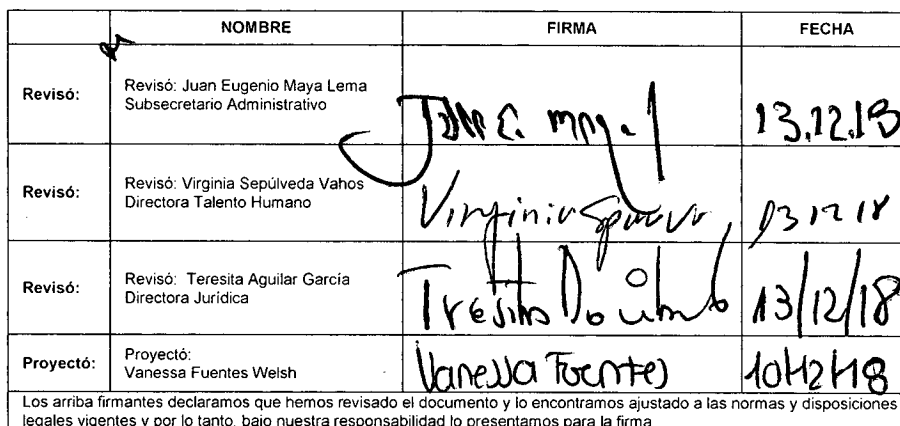 NOMBRE FIRMA FECHA
Revisó: Revisó: Juan Eugenio Maya Lema
Subsecretario Administrativo 13.12.18
Revisó: Revisó: Virginia Sepúlveda Vahos
Directora Talento Humano Virginia 13 12 18
Revisó: Revisó: Teresita Aguilar García
Directora Jurídica 13/12/18
Proyectó: Proyectó:
Vanessa Fuentes Welsh Vanessa Fuentes 10/12/18
Los arriba firmantes declaramos que hemos revisado el documento y lo encontramos ajustado a las normas y disposiciones
legales vigentes y por lo tanto, bajo nuestra responsabilidad lo presentamos para la firma